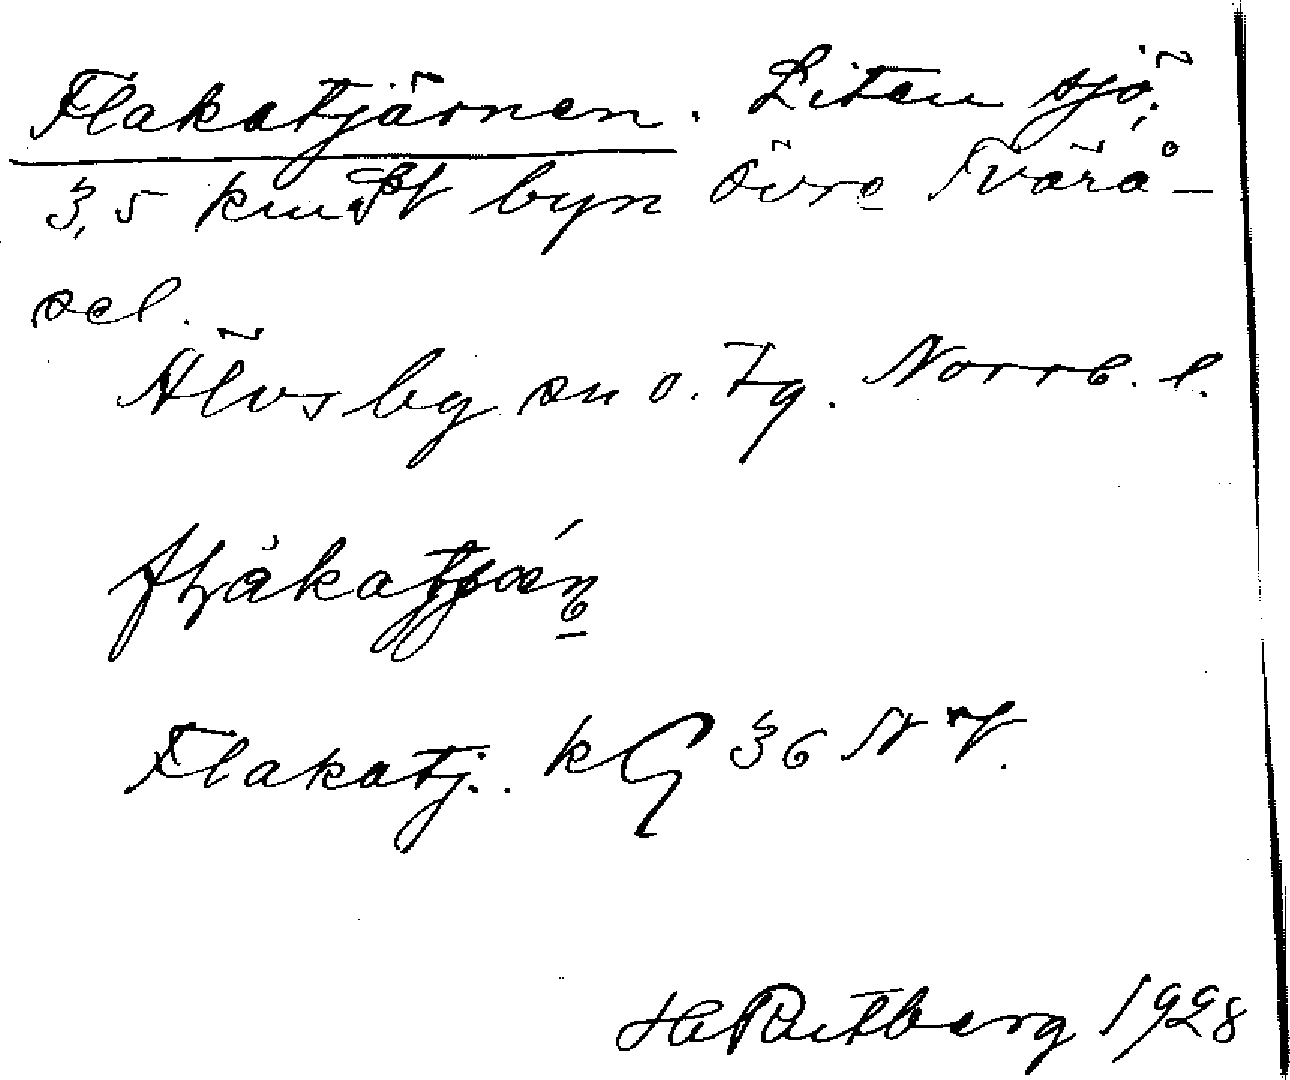 Flakatjärnen. Liten sjö,
3,5 km St byn övre Tvärå-
sel.
Älvsby sn o. tg. Norrb. l.
Flakatj. kG 36 NV.
H Rutberg 1928